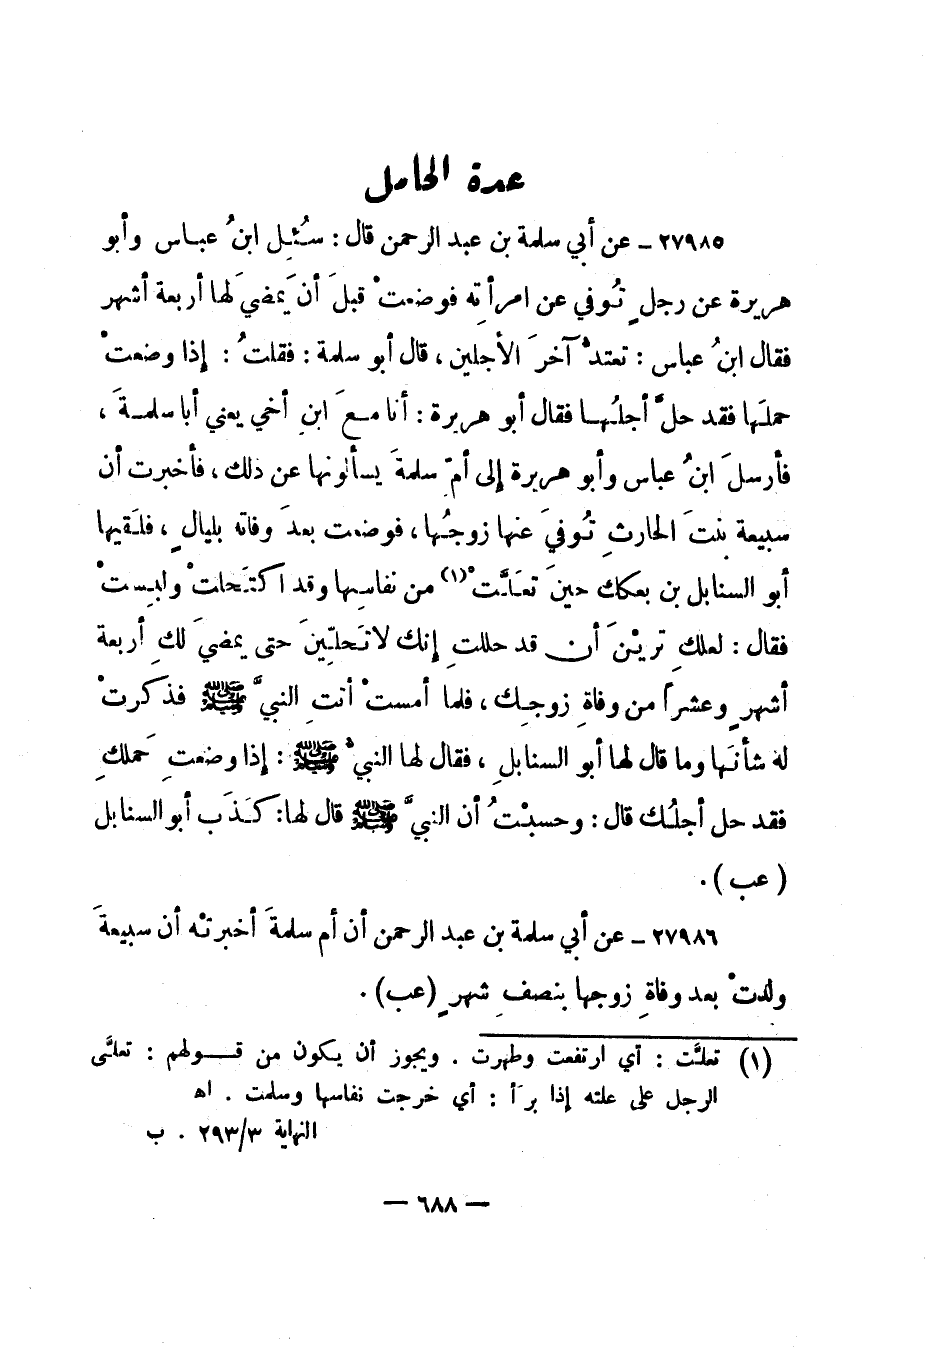 عدة الحامل
٢٧٩٨٥ ـ عن أبي سلمة بن عبد الرحمن قال : سُئِل ابنُ عباس وأبو
هريرة عن رجلٍ تُوفي عن امرأتِه فوضعتْ قبلَ أن يَمضيَ لها أربعة أشهر
فقال ابنُ عباس : تعتدُّ آخرَ الأجلين ، قال أبو سلمة : فقلتُ : إذا وضعتْ
حملَها فقد حلَّ أجلُها فقال أبو هريرة : أنا معَ ابنِ أخي يعني أبا سلمةَ ،
فأرسلَ ابنُ عباس وأبو هريرة إلى أمِّ سلمةَ يسألونها عن ذلك ، فأخبرت أن
سبيعة بنتَ الحارثِ تُوفيَ عنها زوجُها ، فوضعت بعدَ وفاته بليالٍ ، فلقيها
أبو السنابل بن بعكك حينَ تعلَّتْ(١) من نفاسِها وقد اكتحلتْ ولبستْ
فقال : لعلكِ تريْنَ أن قد حللتِ إنك لا تَحلّينَ حتى يمضيَ لكِ أربعة
أشهرٍ وعشراً من وفاةِ زوجِك ، فلما أمستْ أتتِ النبيَّ ﷺ فذكرتْ
له شأنَها وما قال لها أبو السنابلِ ، فقال لها النبيُّ ﷺ : إذا وضعتِ حَملكِ
فقد حل أجلُك قال : وحسبْتُ أن النبيَّ ﷺ قال لها : كذَب أبو السنابل
( عب ) .
٢٧٩٨٦ ـ عن أبي سلمة بن عبد الرحمن أن أم سلمةَ أخبرتْه أن سبيعةَ
ولدتْ بعد وفاةِ زوجها بنصفِ شهرٍ (عب) .
(١) تعلَّت : أي ارتفعت وطهرت . ويجوز أن يكون من قولهم : تعلَّى
الرجل على علته إذا برَأ : أي خرجت نفاسها وسلمت . اه
النهاية ٢٩٣/٣ . ب
— ٦٨٨ —